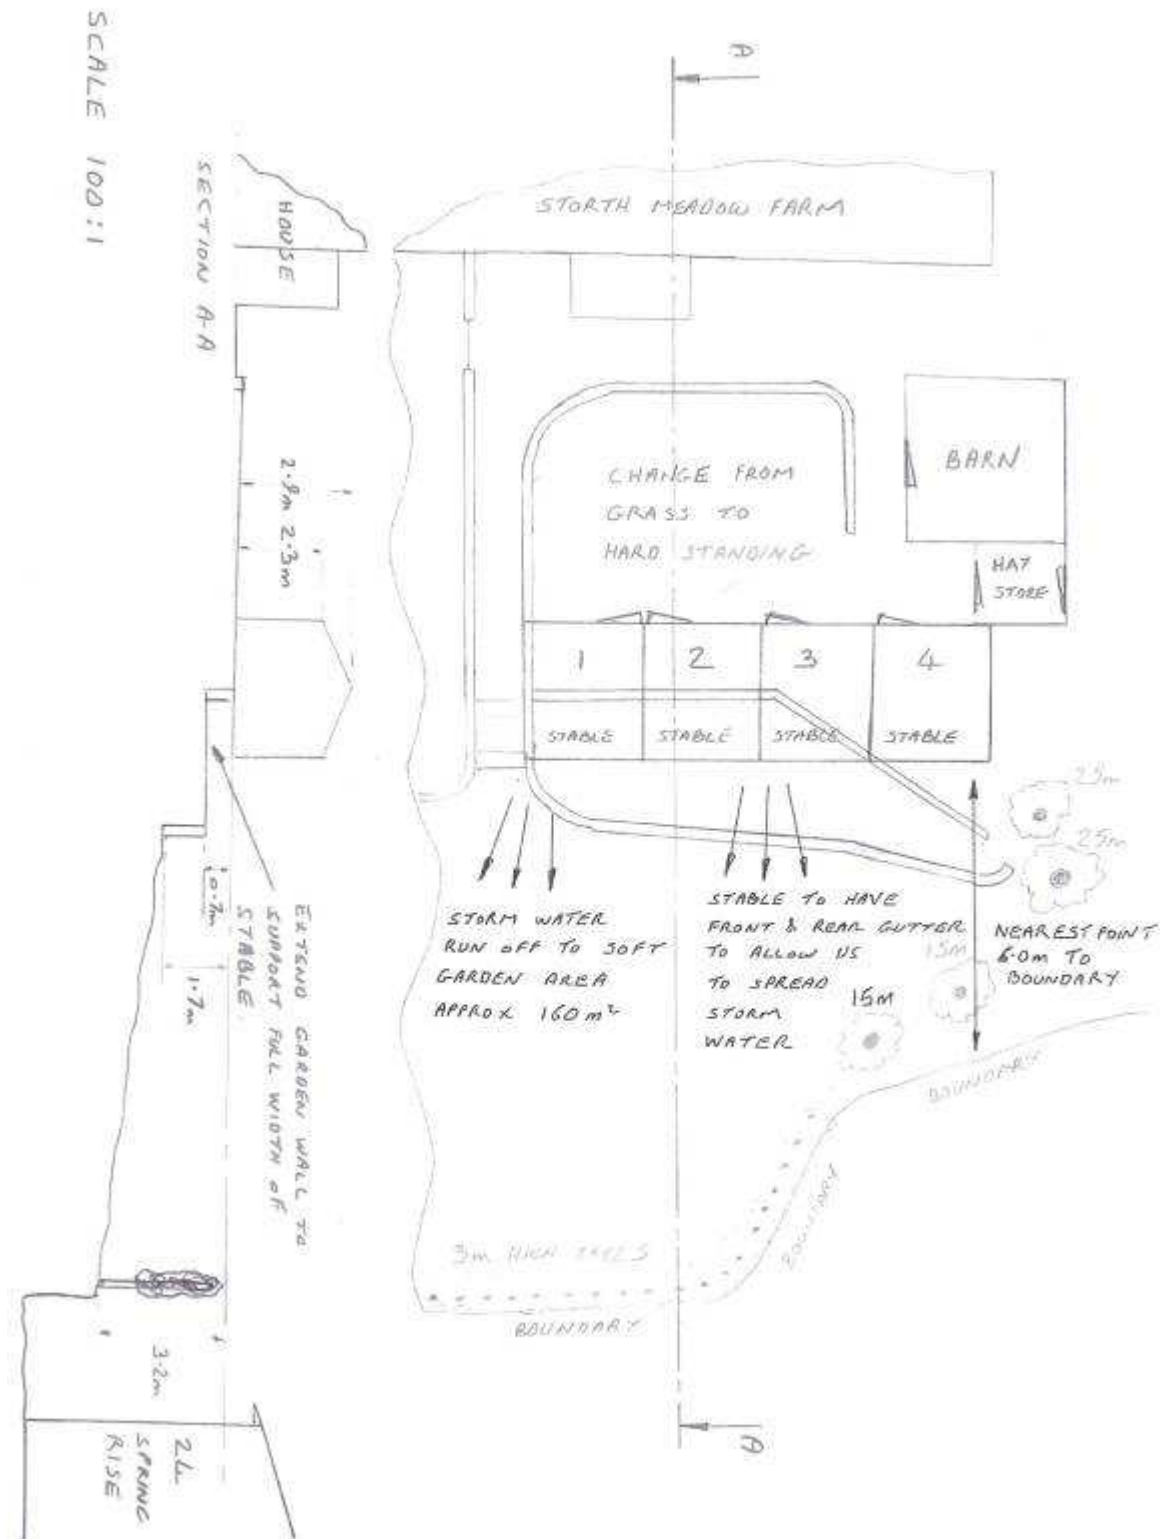 SCALE 100:1
SECTION A-A
HOUSE
2.9m 2.3m
EXTEND GARDEN WALL TO
SUPPORT FULL WIDTH OF
STABLE.
0.7m
1.7m
3.2m
SPRING
RISE
A
STORTH MEADOW FARM
CHANGE FROM
GRASS TO
HARD STANDING
BARN
HAY
STORE
1
2
3
4
STABLE
STABLE
STABLE
STABLE
25m
STORM WATER
RUN OFF TO SOFT
GARDEN AREA
APPROX 160m²
STABLE TO HAVE
FRONT & REAR GUTTER
TO ALLOW US
TO SPREAD
STORM
WATER
NEAREST POINT
6.0m TO
BOUNDARY
15M
15M
BOUNDARY
BOUNDARY
3m HIGH TREES
BOUNDARY
A